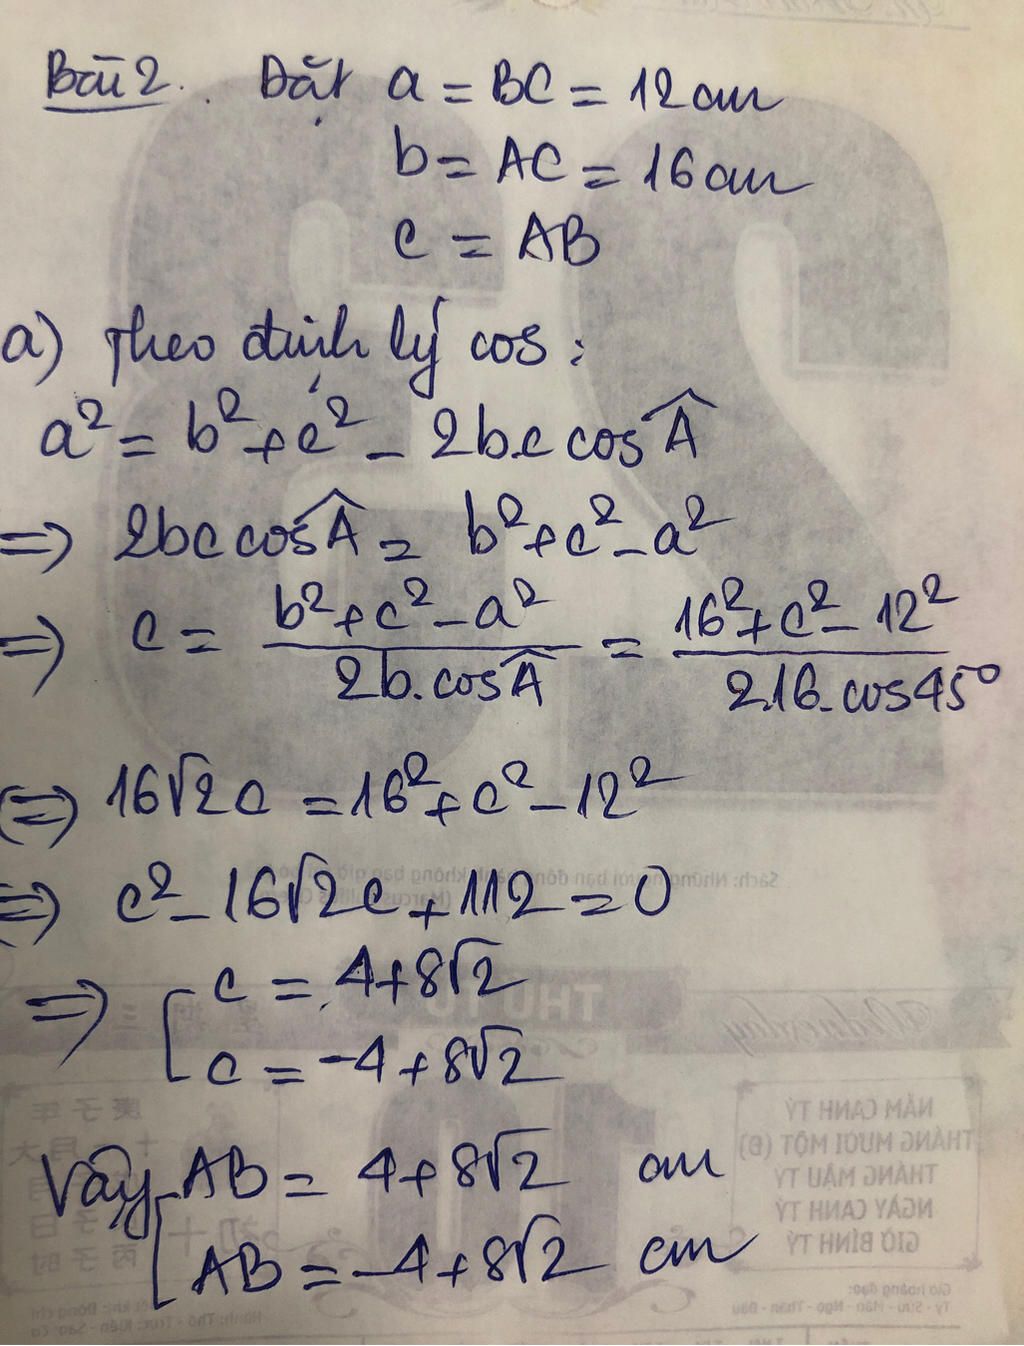 Bài 2. Đặt a = BC = 12 cm
b = AC = 16 cm
c = AB
a) Theo định lý cos :
a² = b² + c² - 2b.c cos Â
=> 2bc cos Â = b² + c² - a²
=> c = (b² + c² - a²)/(2b.cos Â) = (16² + c² - 12²)/(2.16.cos 45°)
(=>) 16√2c = 16² + c² - 12²
=> c² - 16√2c + 112 = 0
=> [ c = 4 + 8√2
c = -4 + 8√2
Vậy [ AB = 4 + 8√2 cm
AB = -4 + 8√2 cm
Sách: Những người bạn
THỨ TƯ
Wednesday
NĂM CANH TÝ
THÁNG MƯỜI MỘT (Đ)
THÁNG MẬU TÝ
NGÀY CANH TÝ
GIỜ BÍNH TÝ
Giờ hoàng đạo:
Tý - Sửu - Mão - Ngọ - Thân - Dậu
23
10